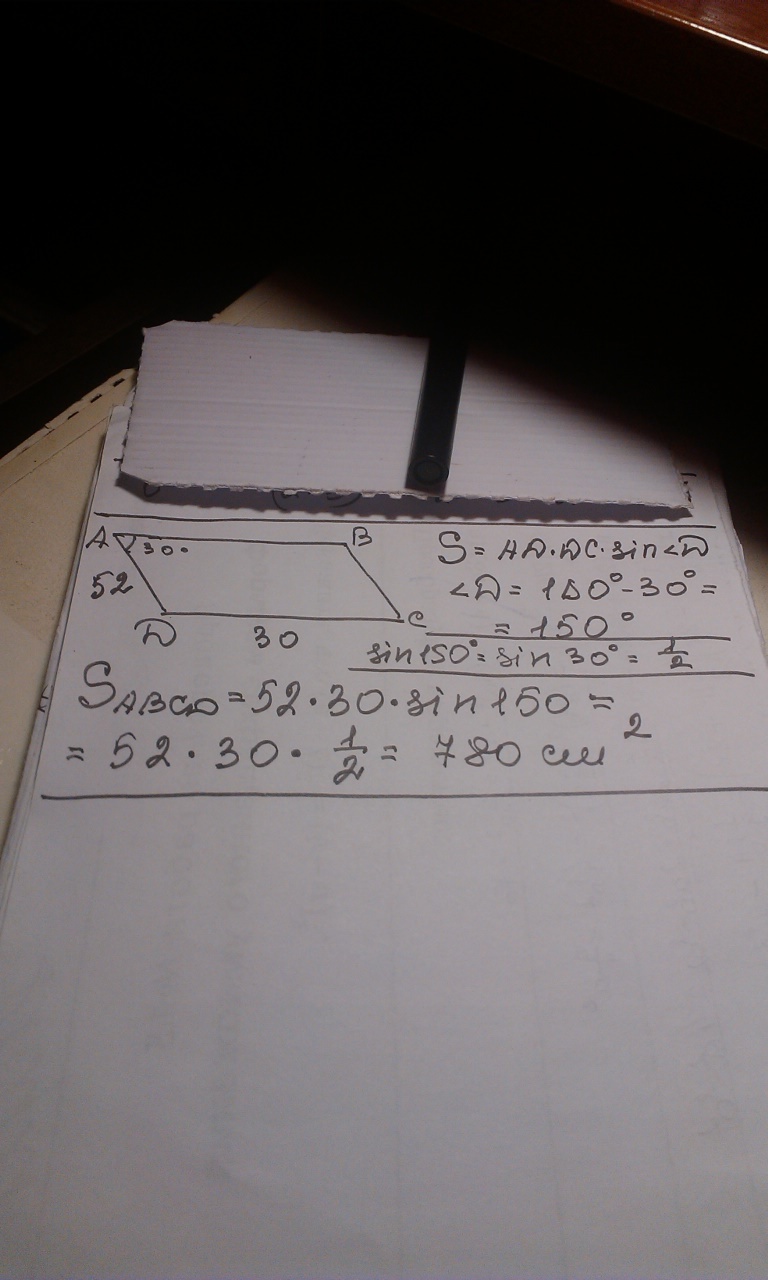 A
30°
B
S = AD·DC·sin∠D
52
∠D = 180°-30° =
D
30
C
= 150°
sin150° = sin 30° = 1/2
S ABCD = 52·30·sin150 =
= 52·30· 1/2 = 780 см²